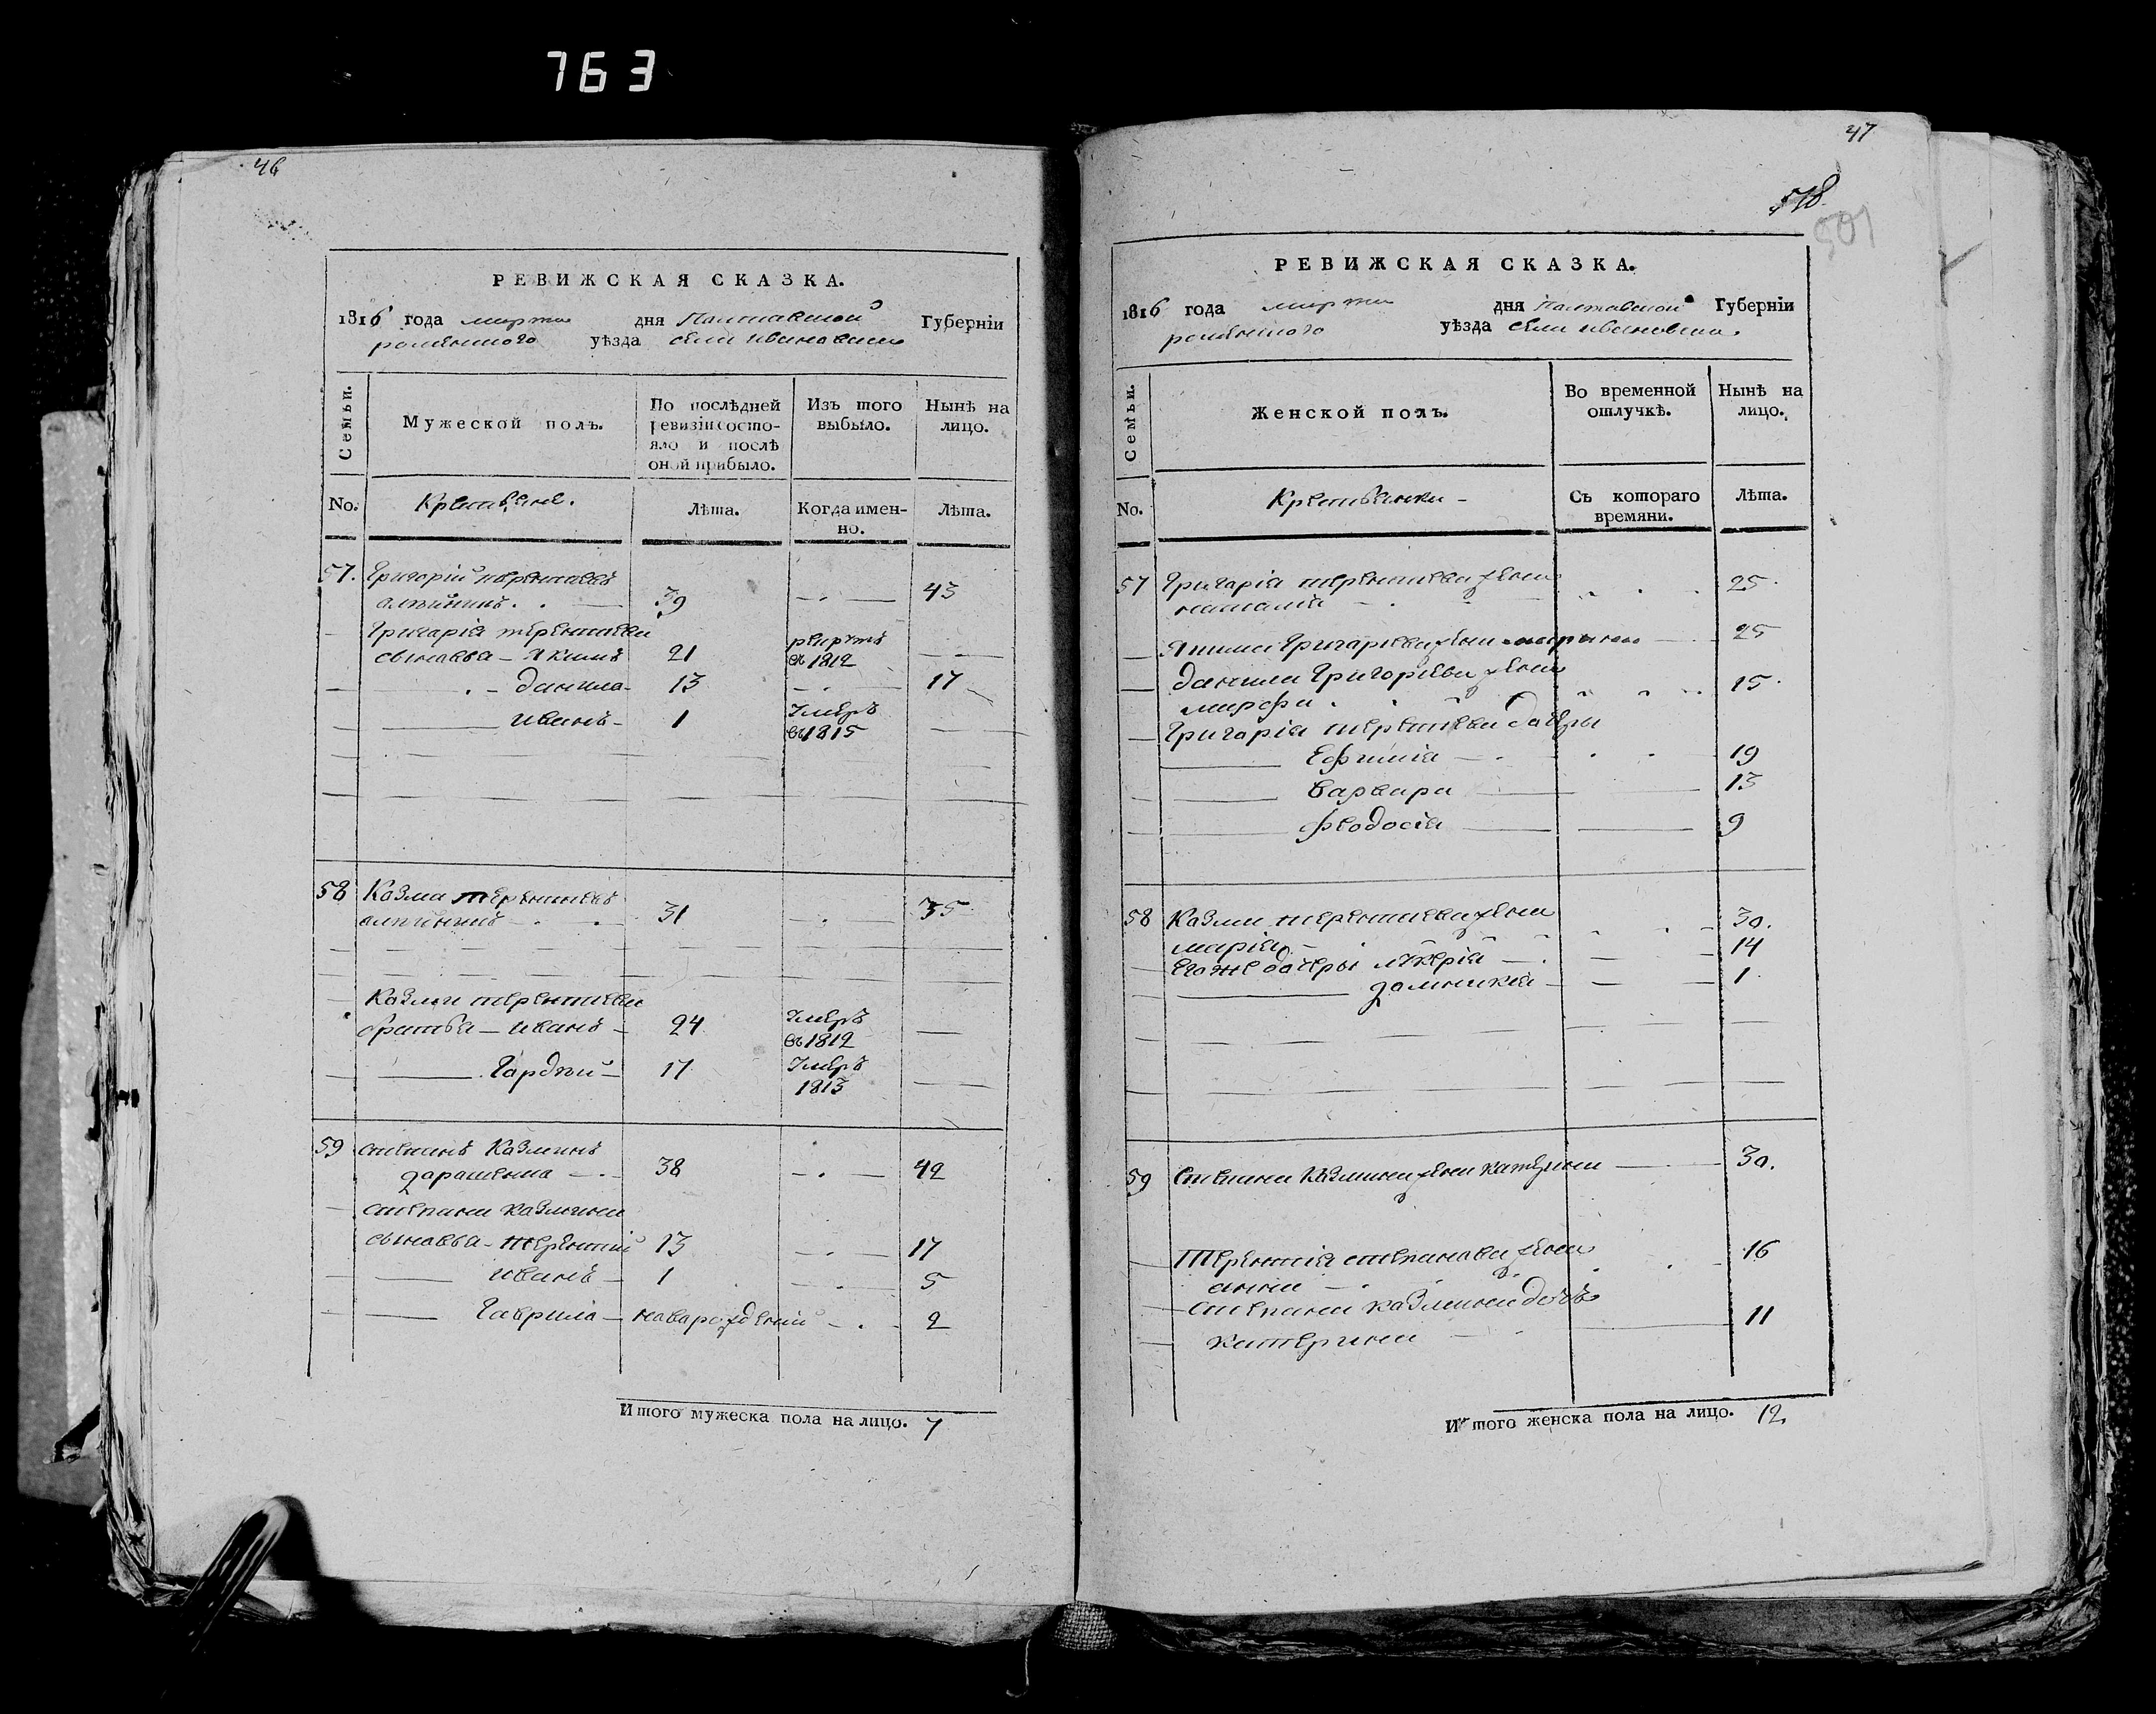 763
46
РЕВИЖСКАЯ СКАЗКА.
1816 года марта дня Палтавской Губерніи
роменского уѣзда села Ивановки
Семьи.
Мужеской полъ.
По послѣдней ревизіи состояло и послѣ оной прибыло.
Изъ того выбыло.
Нынѣ на лицо.
No.
Крестьяне.
Лѣта.
Когда именно.
Лѣта.
57. Григорій терентиевъ
39 43
Григарія терентиева
сынавья - Якимъ 21 рекрутъ въ 1812
данила 13 17
иванъ 1 умеръ въ 1815
58 Казма терентиевъ
31 35
Казми терентиева
братья - иванъ 24 умеръ въ 1812
Гардѣй 17 умеръ 1813
59 степанъ Казминъ
38 42
степана казмина
сынавья - терентий 13 17
иванъ 1 5
Гаврила - наварождений 2
Итого мужеска пола на лицо. 7
47
518.
501
РЕВИЖСКАЯ СКАЗКА.
1816 года марта дня Палтавской Губерніи
роменского уѣзда села Ивановки
Семьи.
Женской полъ.
Во временной отлучкѣ.
Нынѣ на лицо.
No.
Крестьянки
Съ котораго времяни.
Лѣта.
57 Григарія терентиева жена
наталія 25
Якима Григариева жена марина 25
данила Григориева жена
марфа 15
Григарія терентиева дочеры
Ефимія 19
варвара 13
феодосія 9
58 Казми терентиева жена
марія 30.
егоже дочеры лукерія 14
1
59 Степана Казмина жена катерина 30.
Терентія степанава жена
анна 16
степана казмина дочь
катерина 11
Итого женска пола на лицо. 12.